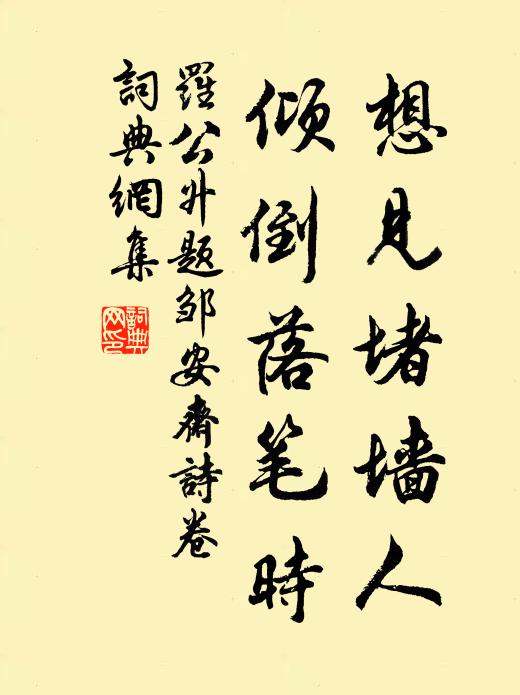 想見堵墻人
傾倒落笔時
羅公升題邹安齋詩卷
詞典網集
詞典网印